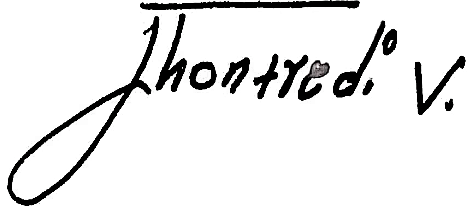 Jhontred° V.